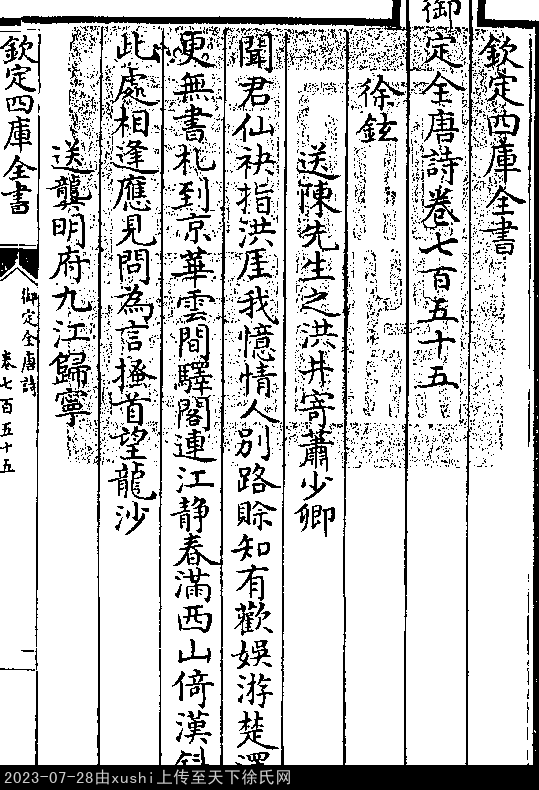 欽定四庫全書
御定全唐詩卷七百五十五
徐鉉
送陳先生之洪井寄蕭少卿
聞君仙袂指洪厓我憶情人别路賖知有歡娛游楚澤
更無書札到京華雲間驛閣連江静春滿西山倚漢斜
此處相逢應見問為言搔首望龍沙
送龔明府九江歸寧
欽定四庫全書
御定全唐詩
卷七百五十五
一
2023-07-28由xushi上传至天下徐氏网